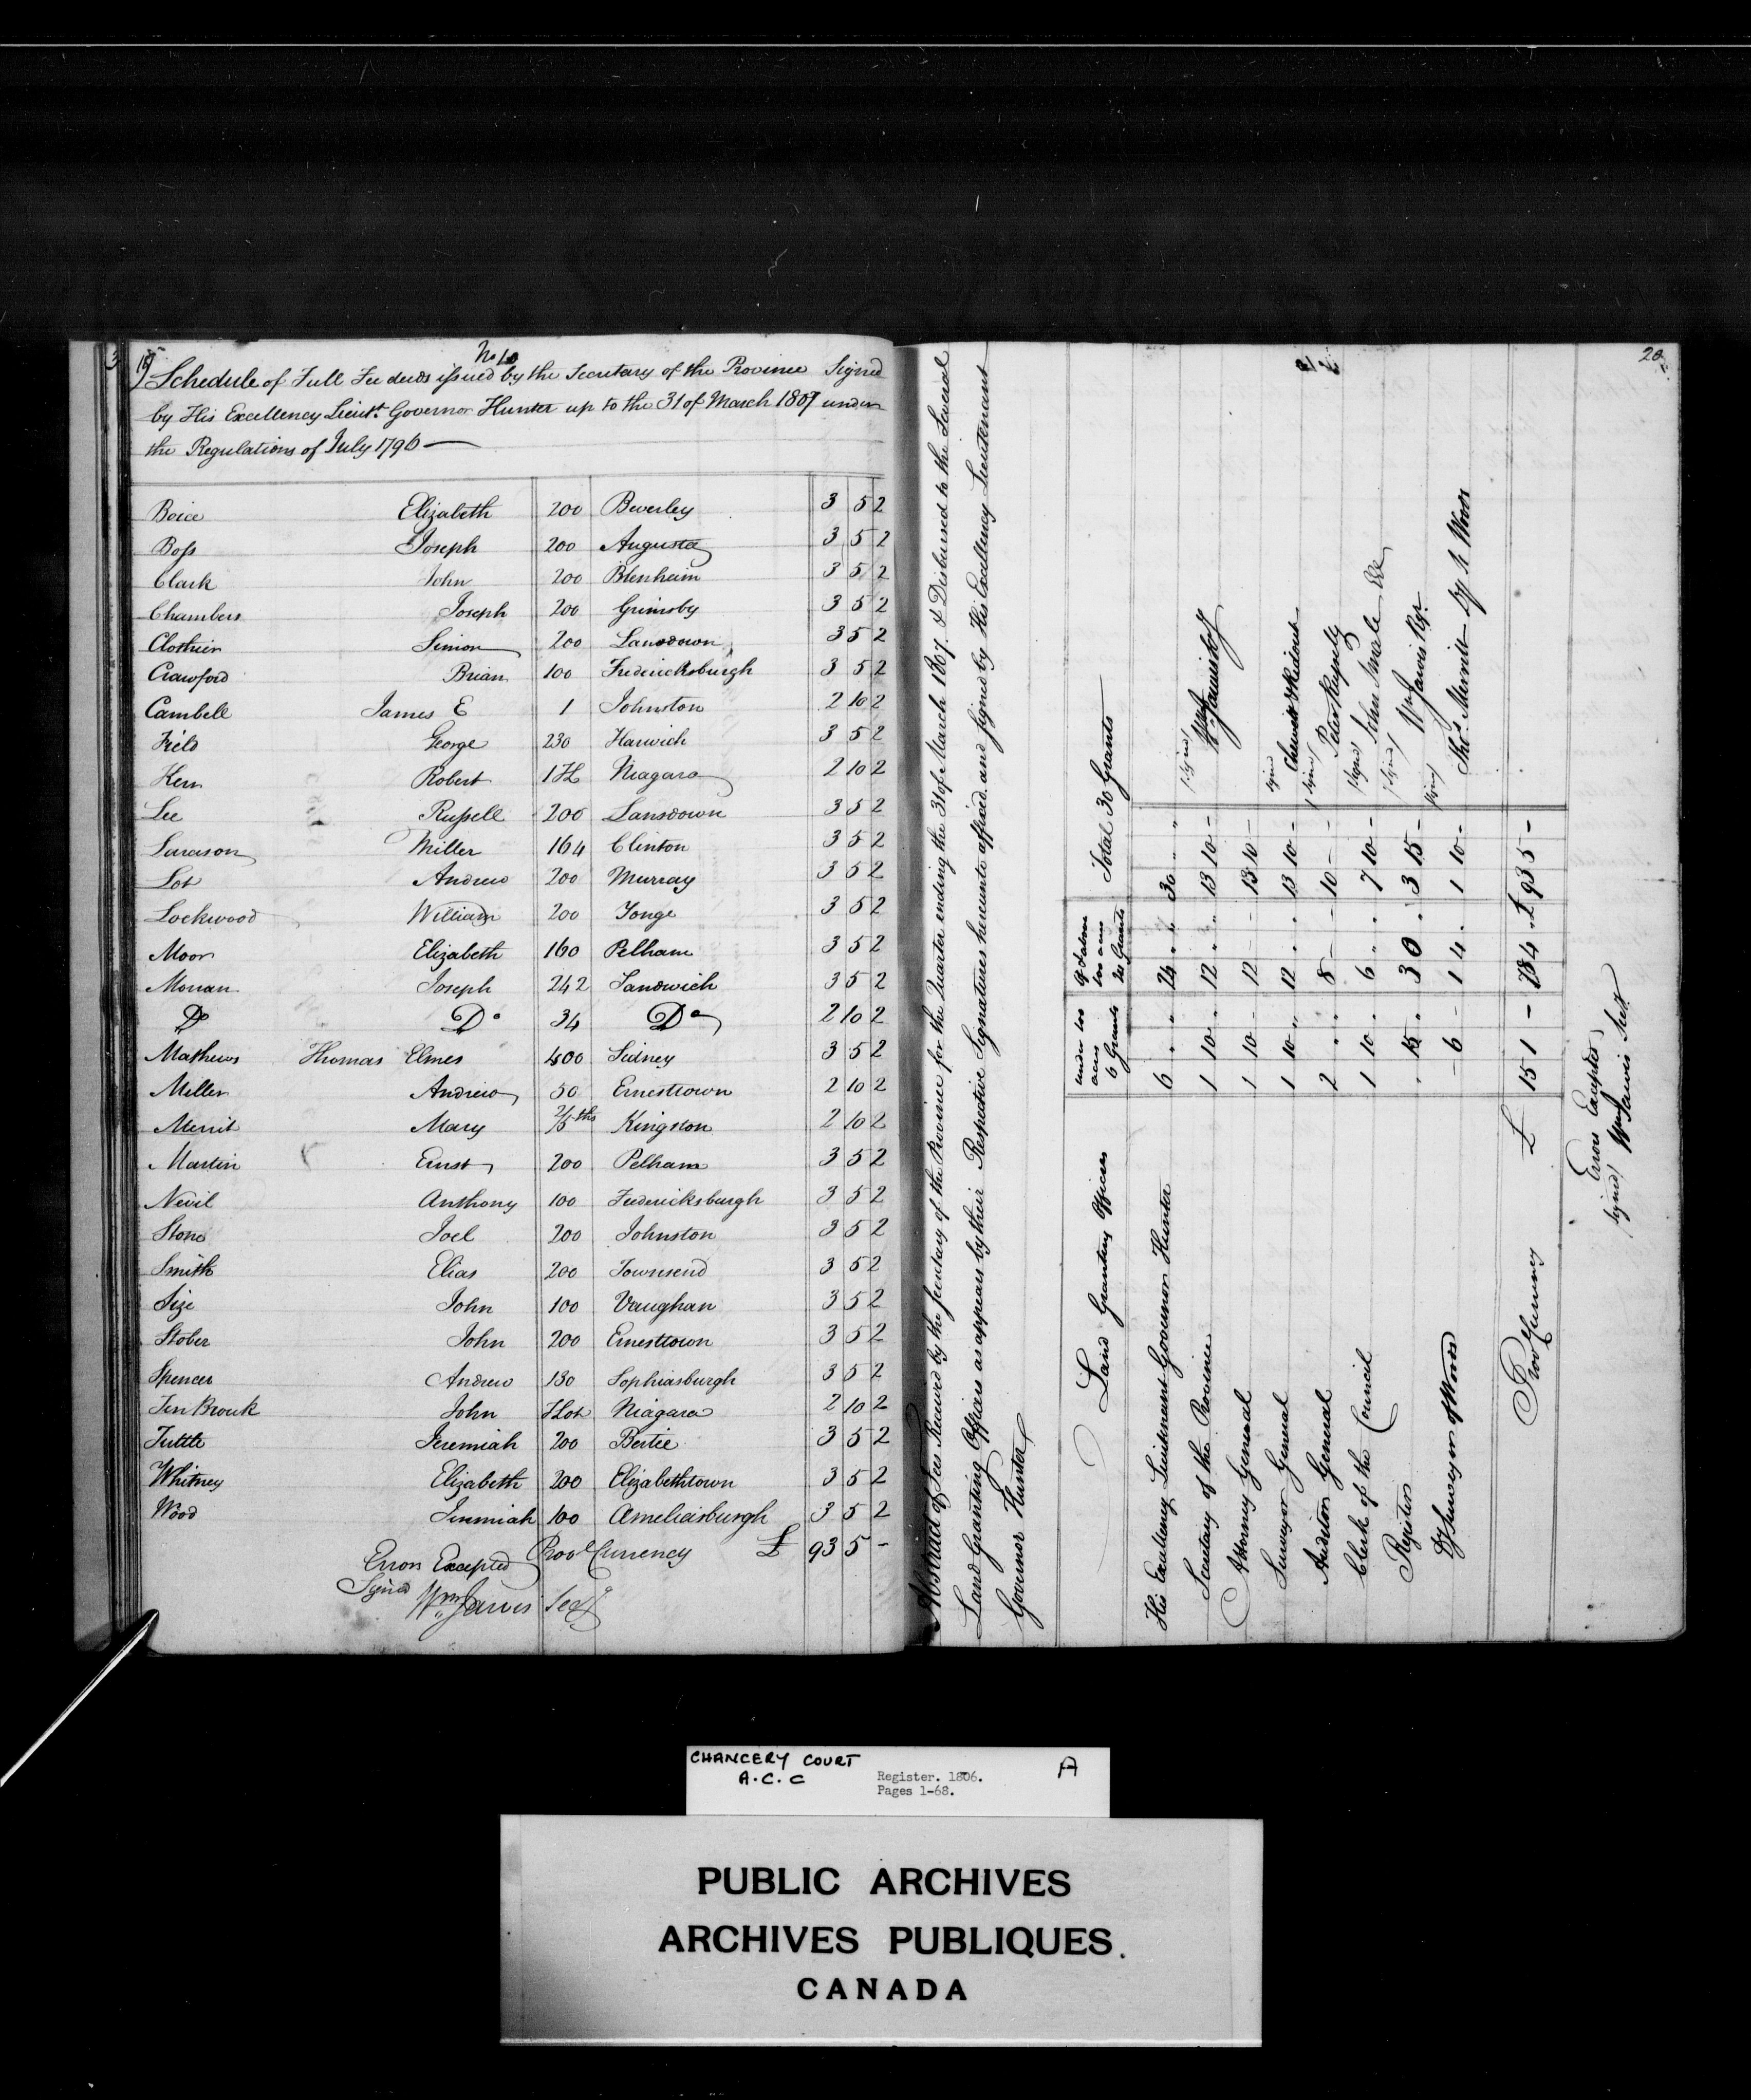 19
No 10
Schedule of Full Fee deeds issued by the Secretary of the Province Signed
by His Excellency Lieut. Governor Hunter up to the 31 of March 1807 under
the Regulations of July 1796
Boice Elizabeth 200 Beverley 3 5 2
Boss Joseph 200 Augusta 3 5 2
Clark John 200 Blenheim 3 5 2
Chambers Joseph 200 Grimsby 3 5 2
Clothier Simon 200 Lansdown 3 5 2
Crawford Brian 100 Fredericksburgh 3 5 2
Cambell James E 1 Johnston 2 10 2
Field George 230 Harwich 3 5 2
Kerr Robert 1 TL Niagara 2 10 2
Lee Russell 200 Lansdown 3 5 2
Larason Miller 164 Clinton 3 5 2
Lot Andrew 200 Murray 3 5 2
Lockwood William 200 Yonge 3 5 2
Moor Elizabeth 160 Pelham 3 5 2
Moran Joseph 242 Sandwich 3 5 2
Do Do 34 Do 2 10 2
Mathews Thomas Elmes 400 Sidney 3 5 2
Miller Andrew 50 Ernesttown 2 10 2
Merrit Mary 2/5ths Kingston 2 10 2
Martin Ernst 200 Pelham 3 5 2
Nevil Anthony 100 Fredericksburgh 3 5 2
Stone Joel 200 Johnston 3 5 2
Smith Elias 200 Townsend 3 5 2
Size John 100 Vaughan 3 5 2
Stober John 200 Ernesttown 3 5 2
Spencer Andrew 130 Sophiasburgh 3 5 2
Ten Brouk John TLot Niagara 2 10 2
Tuttle Jeremiah 200 Bertie 3 5 2
Whitney Elizabeth 200 Elizabethtown 3 5 2
Wood Jeremiah 100 Ameliasburgh 3 5 2
Errors Excepted Provl Currency £ 93 5 -
Signed Wm Jarvis Secy
20
Abstract of Fees Received by the Secretary of the Province for the Quarter ending the 31 of March 1807. & Disbursed to the Several
Land Granting Officers as appears by their Respective Signatures hereunto affixed and signed by His Excellency Lieutenant
Governor Hunter
Land Granting Officers under 100 acres 6 Grants Total 30 Grants
His Excellency Lieutenant Governor Hunter 6 " " 24 " " 30 " "
Secretary of the Province 1 10 " 12 " " 13 10 - (signed) Wm Jarvis Secy
Attorney General 1 10 - 12 - - 13 10 -
Surveyor General 1 10 " 12 " " 13 10 - signed Chewett & Ridout
Auditor General 2 " " 8 - - 10 - - (signed) Peter Russell
Clerk of the Council 1 10 " 6 " " 7 10 - (signed) John Small
Register . 15 " 3 0 . 3 15 - (signed) Wm Jarvis Regr.
Dy Surveyor of Woods - 6 - 1 4 . 1 10 - signed Thos. Merritt Dy Sr Woods
Provl Currency £ 15 1 - 78 4 . £ 93 5 -
Errors Excepted
(signed) Wm Jarvis Secy
CHANCERY COURT
A.C.C
Register. 1806.
Pages 1-68.
A
PUBLIC ARCHIVES
ARCHIVES PUBLIQUES.
CANADA